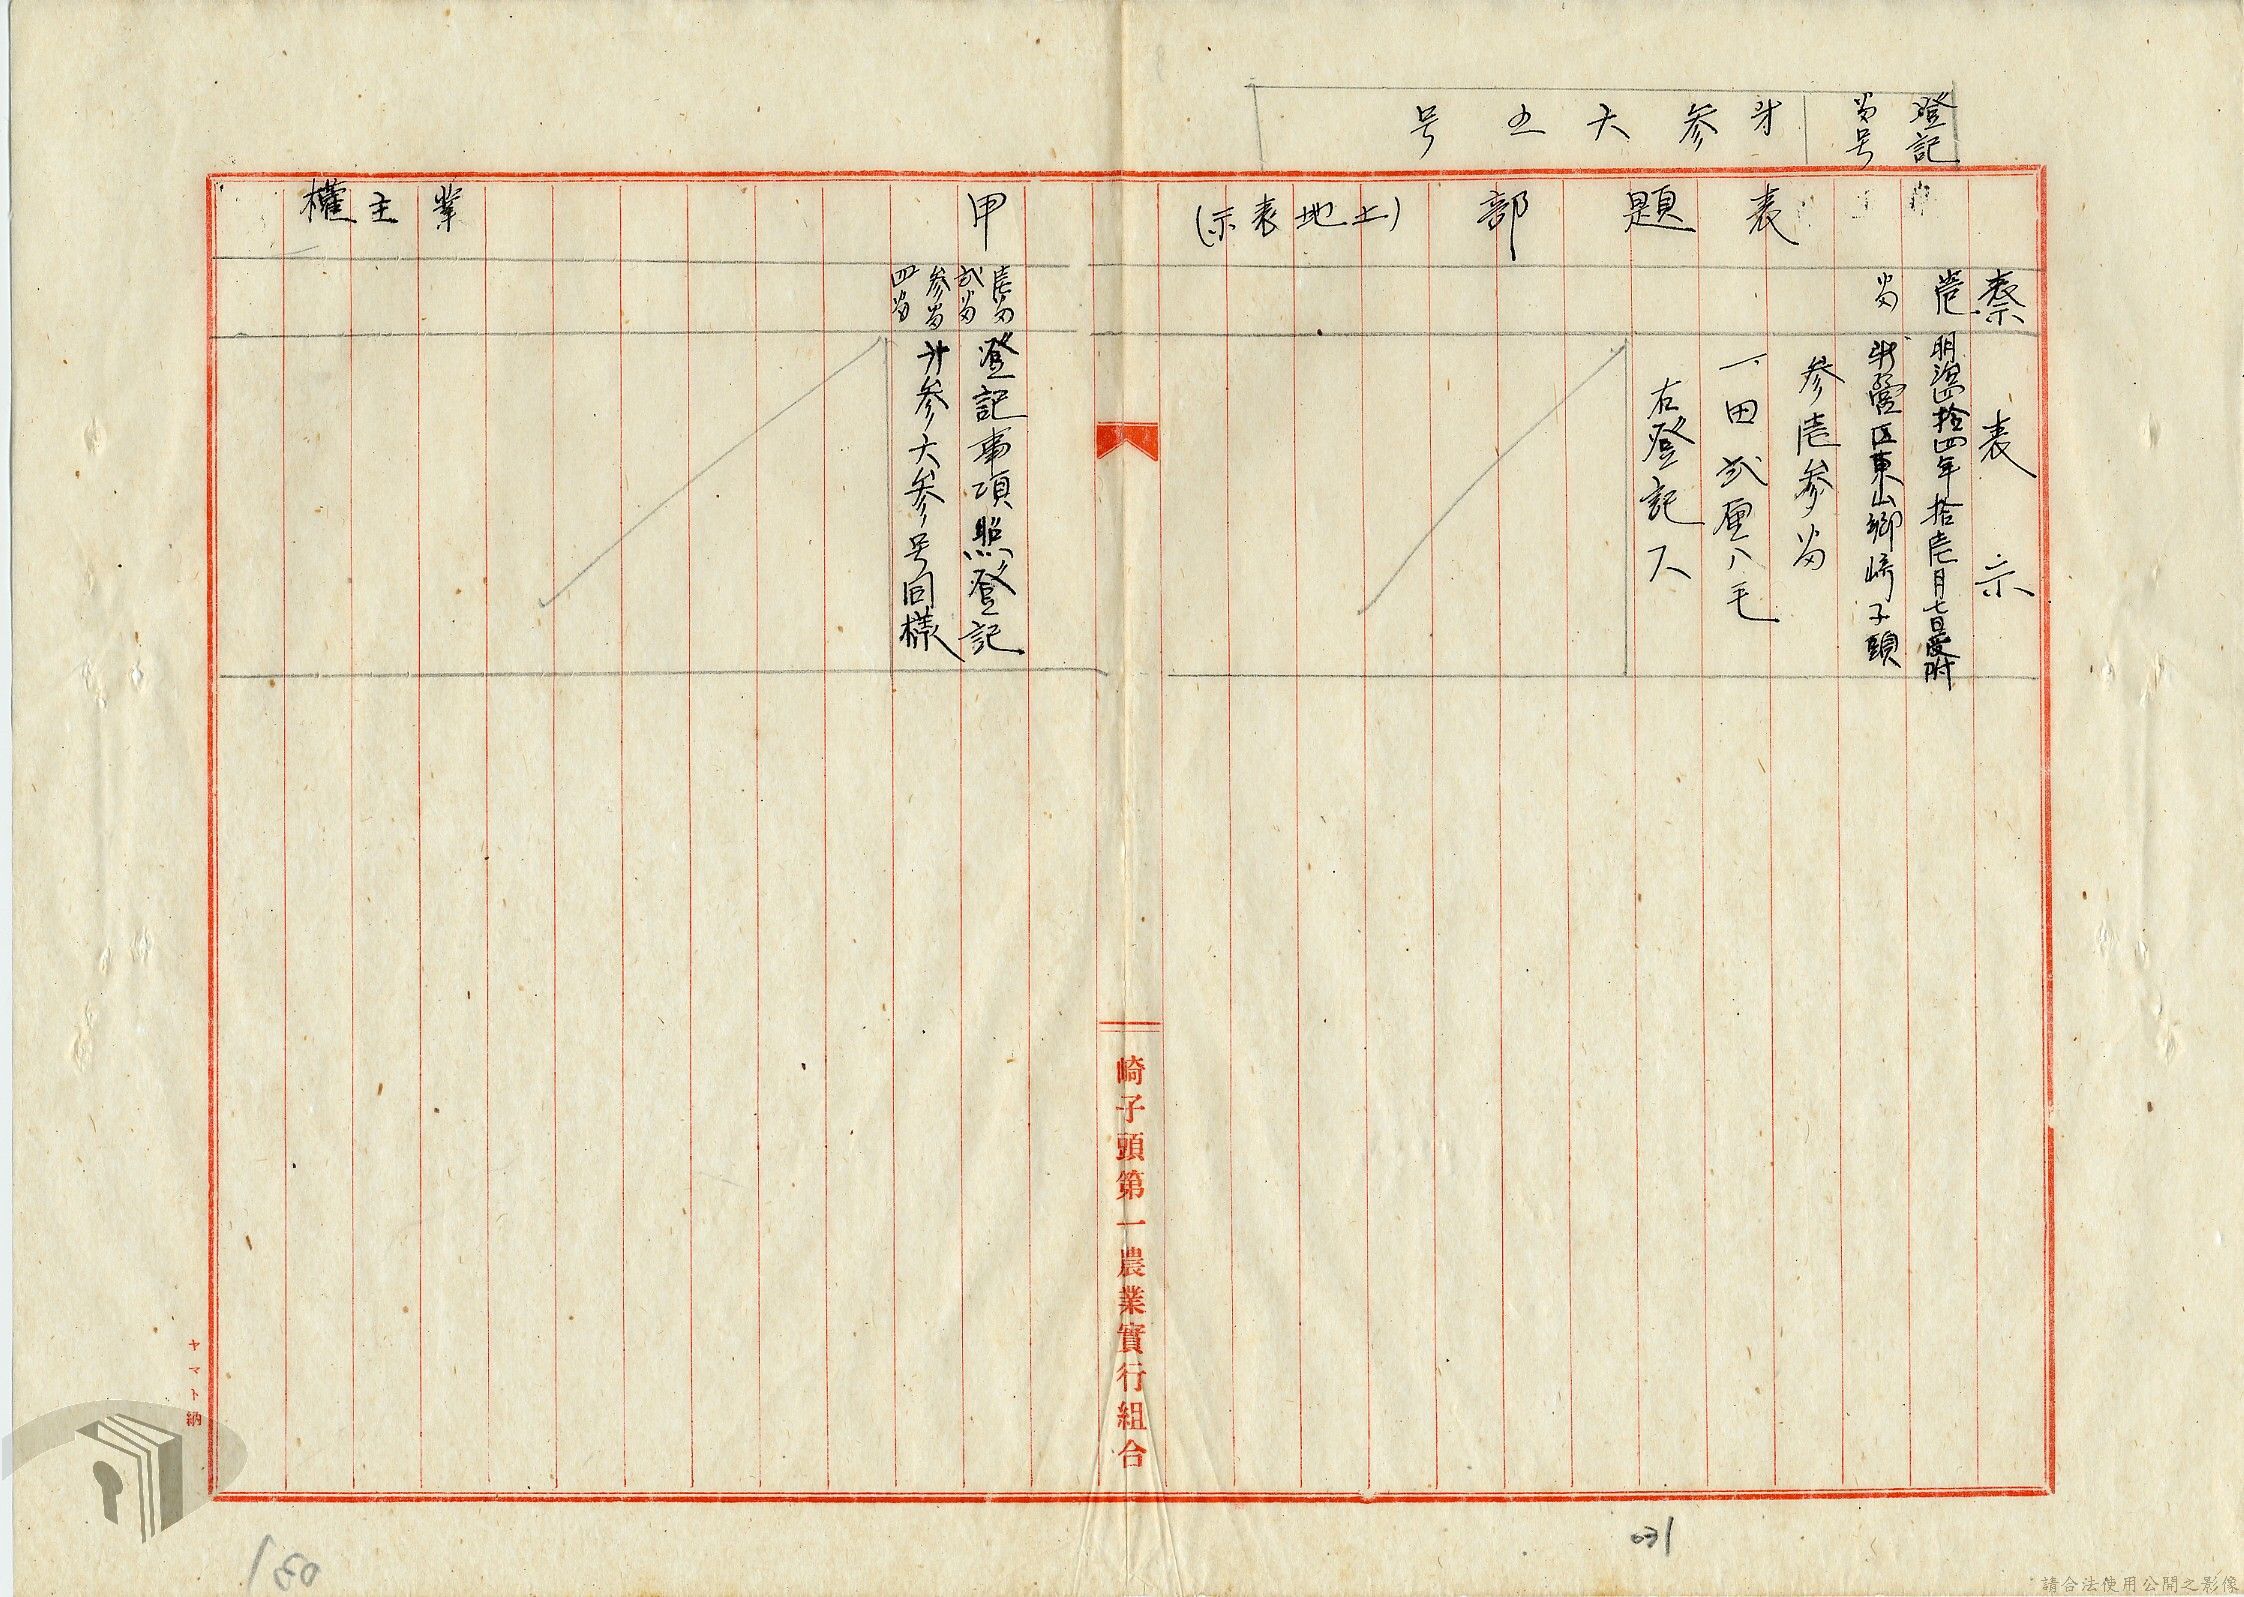 登記
番号
第参六五号
表題部(土地表示)
表示
壱番
明治四拾四年拾壱月七日受附
区東山郷崎子頭
参壱参番
一、田弐厘八毛
右登記ス
甲
業主権
壱番
弐番
参番
四番
登記事項照登記
第参六参号同様
崎子頭第一農業實行組合
ヤマト納
031
130
請合法使用公開之影像